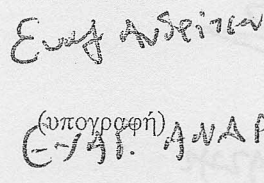 Ευαγ Ανδρίτσαν
(υπογραφή)
Ε-ΥΑΓ. ΑΝΔΡ